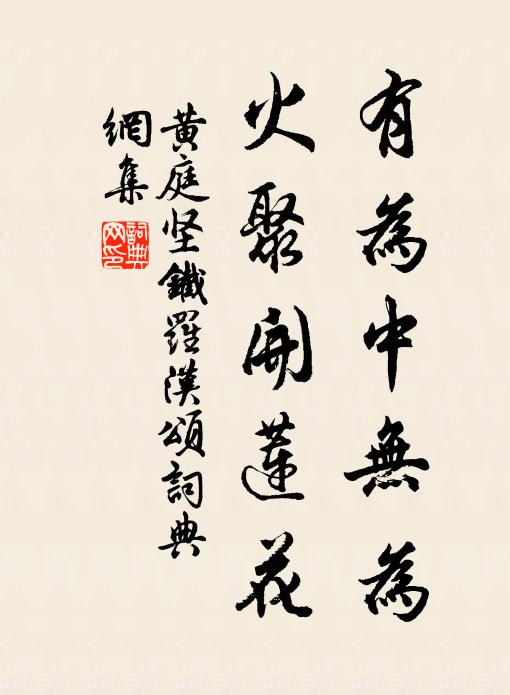 有為中無為
火聚開蓮花
黄庭坚鐵羅漢頌詞典
網集
詞典
网印